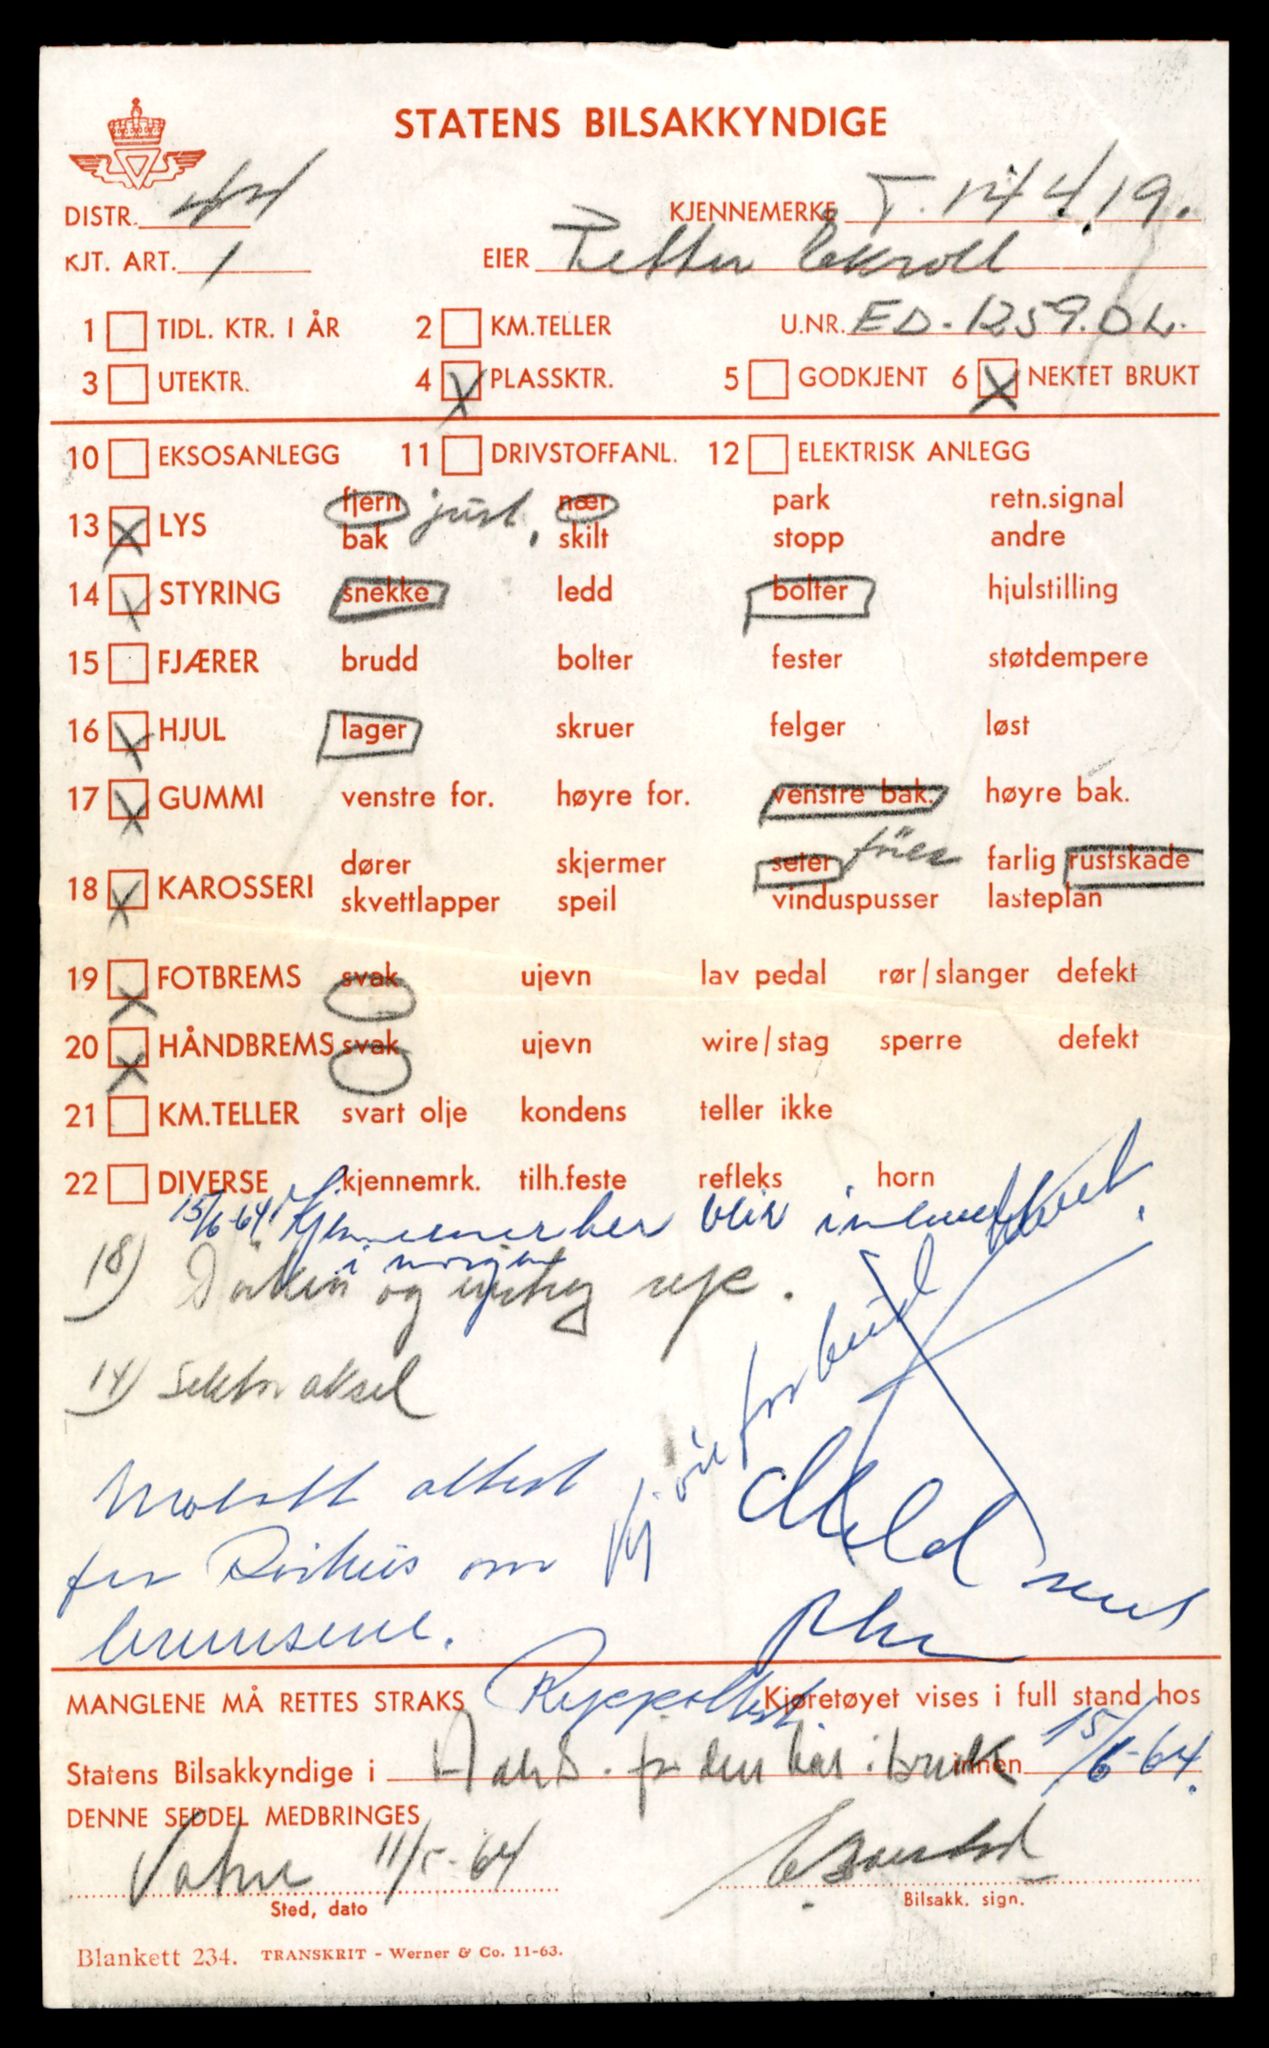 STATENS BILSAKKYNDIGE
DISTR. KJENNEMERKE T. 14419.
KJT. ART. 1 EIER Petter Ekroll
1 TIDL. KTR. I ÅR 2 KM.TELLER U.NR. ED-1259.DL.
3 UTEKTR. 4 X PLASSKTR. 5 GODKJENT 6 X NEKTET BRUKT
10 EKSOSANLEGG 11 DRIVSTOFFANL. 12 ELEKTRISK ANLEGG
fjern just. nær park retn.signal
13 X LYS
bak skilt stopp andre
14 X STYRING snekke ledd bolter hjulstilling
15 FJÆRER brudd bolter fester støtdempere
16 X HJUL lager skruer felger løst
17 X GUMMI venstre for. høyre for. venstre bak. høyre bak.
dører skjermer seter farlig rustskade
18 X KAROSSERI
skvettlapper speil vinduspusser lasteplan
19 X FOTBREMS svak ujevn lav pedal rør/slanger defekt
20 X HÅNDBREMS svak ujevn wire/stag sperre defekt
21 KM.TELLER svart olje kondens teller ikke
22 DIVERSE kjennemrk. tilh.feste refleks horn
15/6-64. Kjennemerker blir innlevert
i morgen
18) og rep.
14) Sektoraksel
Mottatt attest
fra om
bremsene.
forbud
Meld
MANGLENE MÅ RETTES STRAKS Kjøretøyet vises i full stand hos
Statens Bilsakkyndige i før den tas i bruk innen 15/6-64.
DENNE SEDDEL MEDBRINGES
Vatne 11/5-64
Sted, dato Bilsakk. sign.
Blankett 234. TRANSKRIT - Werner & Co. 11-63.